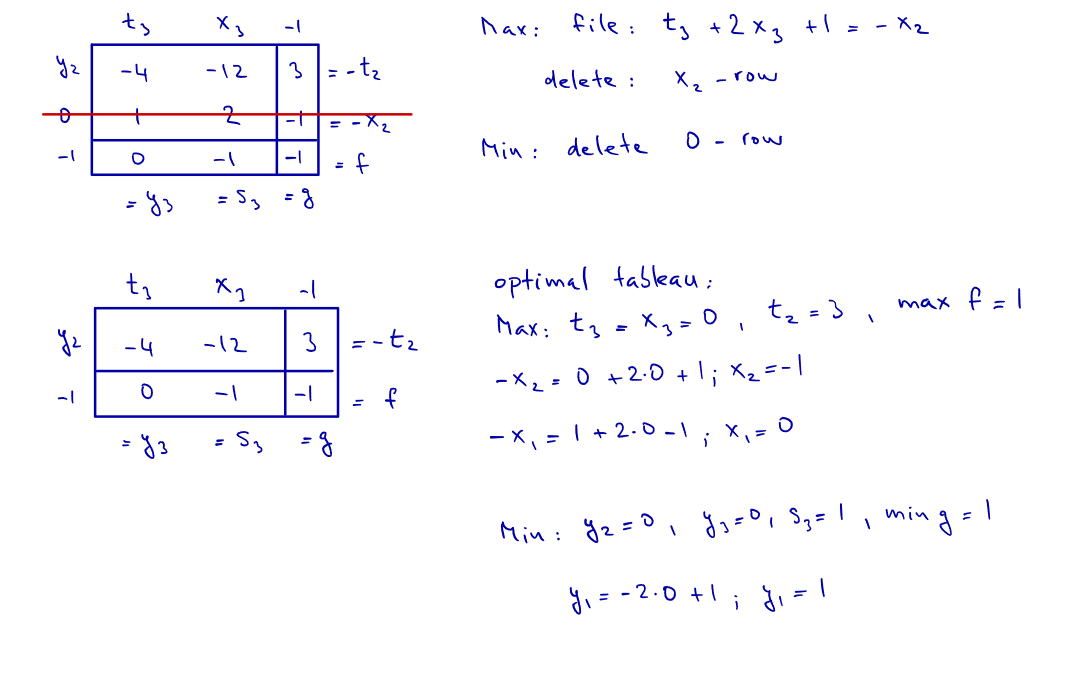 t₃ x₃ -1
y₂ -4 -12 3 = -t₂
0 1 2 -1 = -x₂
-1 0 -1 -1 = f
= y₃ = s₃ = g
Max: file: t₃ + 2x₃ + 1 = -x₂
delete: x₂ - row
Min: delete 0 - row
t₃ x₃ -1
y₂ -4 -12 3 = -t₂
-1 0 -1 -1 = f
= y₃ = s₃ = g
optimal tableau:
Max: t₃ = x₃ = 0, t₂ = 3, max f = 1
-x₂ = 0 + 2·0 + 1; x₂ = -1
-x₁ = 1 + 2·0 - 1; x₁ = 0
Min: y₂ = 0, y₃ = 0, s₃ = 1, min g = 1
y₁ = -2·0 + 1; y₁ = 1